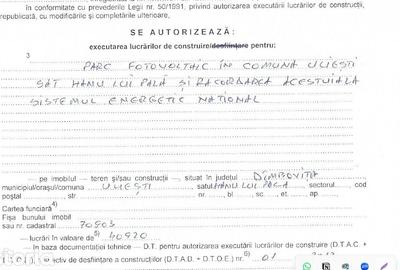 în conformitate cu prevederile Legii nr. 50/1991, privind autorizarea executării lucrărilor de construcții,
republicată, cu modificările și completările ulterioare,
SE AUTORIZEAZĂ:
executarea lucrărilor de construire/desființare pentru:
3
PARC FOTOVOLTAIC IN COMUNA ULIEȘTI
SAT HANU LUI PALĂ SI RACORDAREA ACESTUIA LA
SISTEMUL ENERGETIC NATIONAL
— pe imobilul — teren și/sau construcții —, situat în județul DÎMBOVIȚA
municipiul/orașul/comuna ULIEȘTI, satul HANU LUI PALA, sectorul, cod
poștal, str., nr., bl., sc., et., ap.
Cartea funciară 4)
Fișa bunului imobil
sau nr. cadastral 70903
— lucrări în valoare de 5)
— în baza documentației tehnice — D.T. pentru autorizarea executării lucrărilor de construire (D.T.A.C. +
de autorizare a lucrărilor (D.T.A.D. + D.T.O.E.) nr. 6) 01